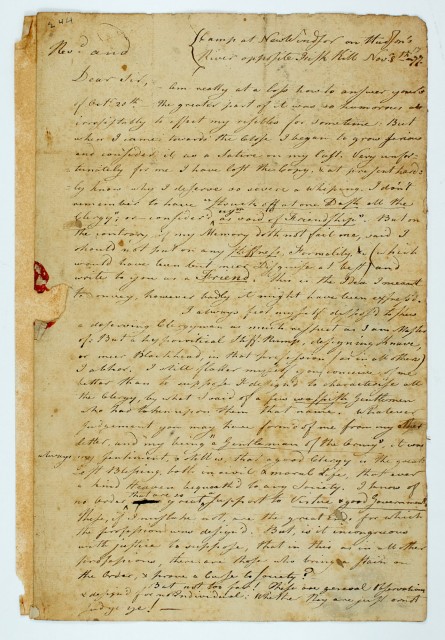 244
Camp at New Windsor on Hudson's
River opposite Fish Kill Nov. 8th 77
Rev.d and
Dear Sir,
Am really at a loss how to answer yours
of Oct. 20th the greater part of it was so humorous as
irresistably to affect my for sometime. But
when I came towards the Close I began to grow serious
and consider it as a Satire on my last. Very unfor-
tunately for me I have lost the Copy, & at present hard-
ly know why I deserve so severe a whiping. I don't
remember to have "struck off at one Dash all the
Clergy", or consider'd you "as void of Friendship". But on
the contrary, if my Memory doth not fail me, said I
should not put on any stiffness, Formality &c (which
would have been but mere Disguise at best) and
write to you as a Friend. This is the Idea I meant
to convey, however badly it might have been express'd.
I always feel myself dispos'd to pay
a deserving Clergyman as much respect as I am Master
of. But a hypocritical Stiff-Rump, designing Knave,
or mere Blockhead, in that profession (as in all others)
I abhor. I still flatter myself you conceive of me
better than to suppose I design'd to characterise all
the Clergy, by what I said of a few waspish Gentlemen
who had taken upon them that name. Whatever
judgement you may have form'd of me from my last
letter, and my being "a Gentleman of the Army" it was
always my Sentiment, & still is, that a good Clergy is the great-
est Blessing, both in civil & moral Life, that ever
kind Heaven bequeath'd to any Society. I know of
no order that are so great support to Virtue & good Government,
these, if I mistake not, are the great End, for which
the profession was design'd. But, is it incongruous
with justice to suppose, that in this as in all other
professions, there are those who bring a stain on
the Order, & prove a Curse to Society?
But not too far! These are general Observations
& design'd for no Individual: Whether they are just or not
judge ye! —